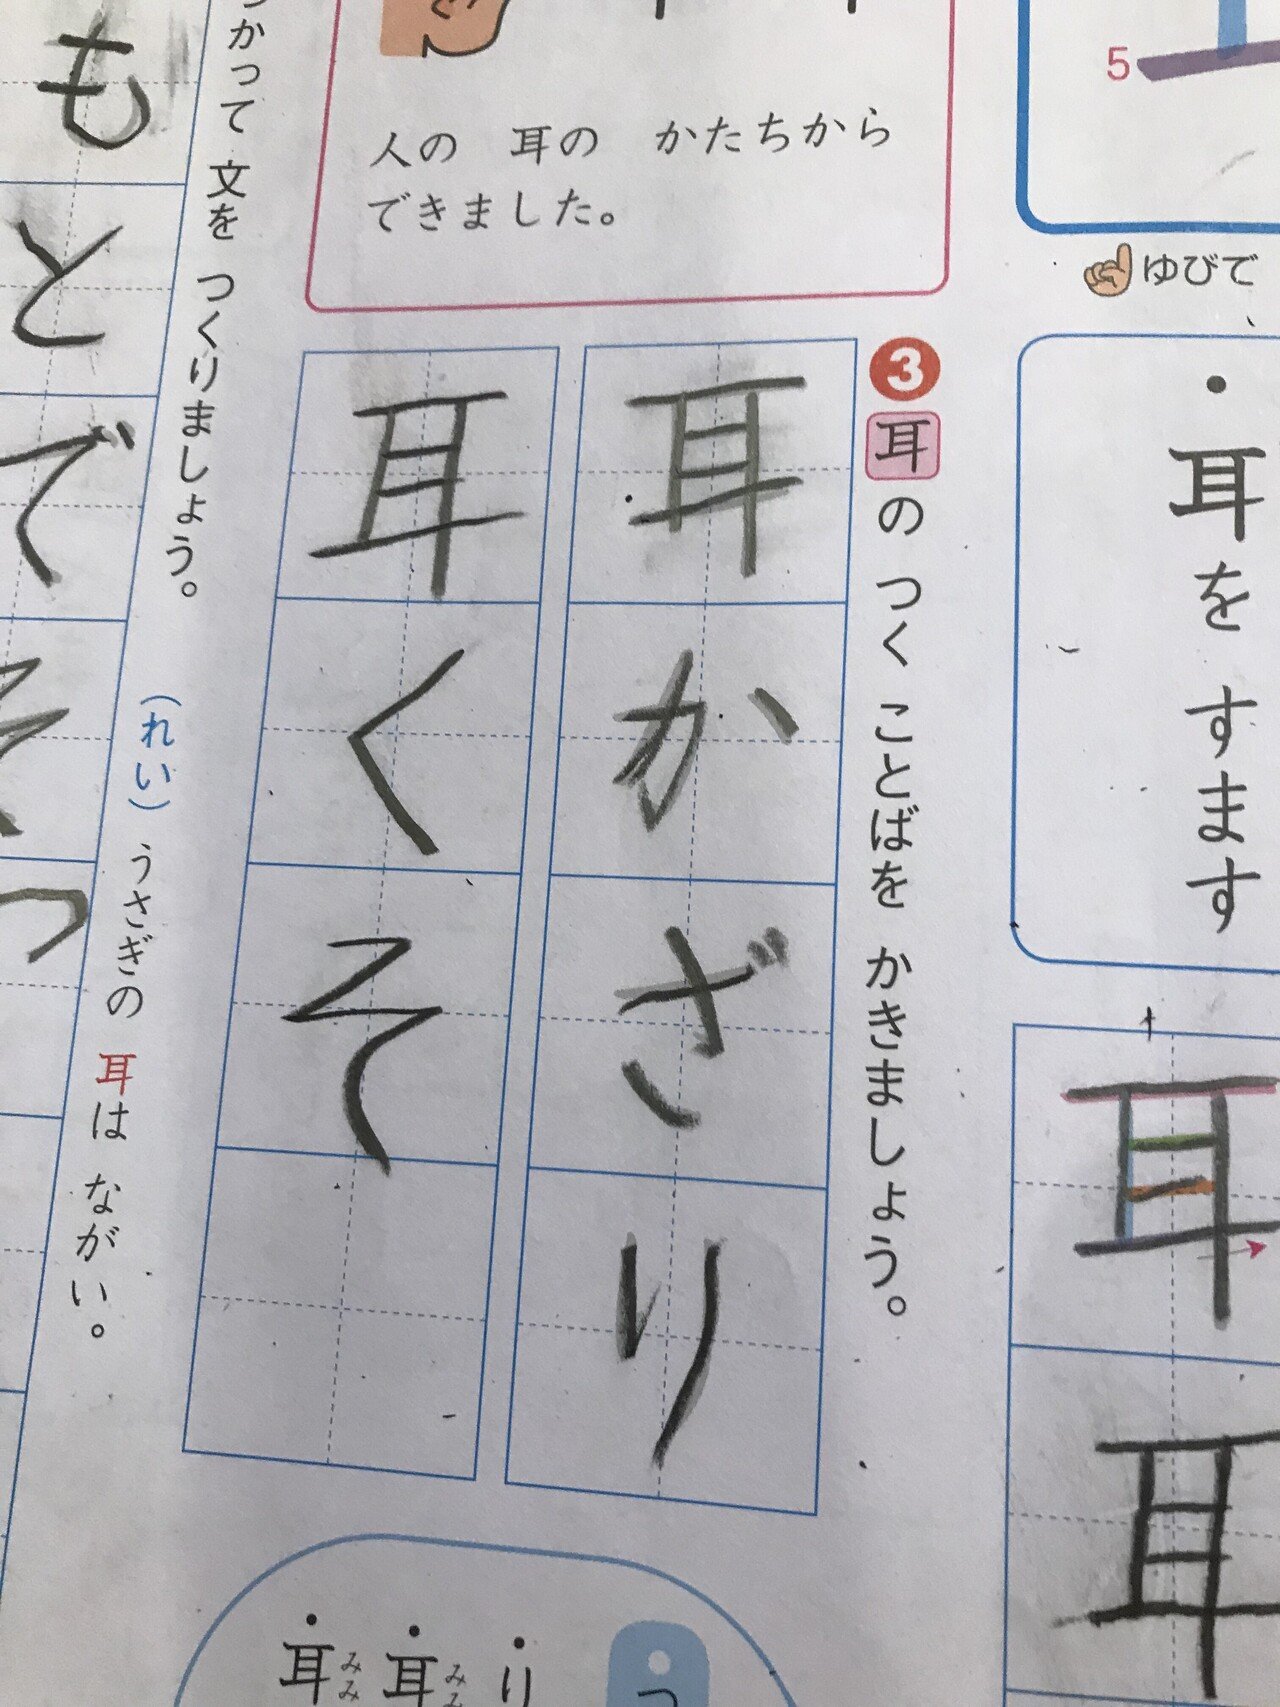 5
ゆびで
耳を すます
耳
耳
人の 耳の かたちから
できました。
3 耳の つく ことばを かきましょう。
耳かざり
耳くそ
かって 文を つくりましょう。
(れい) うさぎの 耳は ながい。
もとでそっ
耳みみ
耳みみ
り
つ